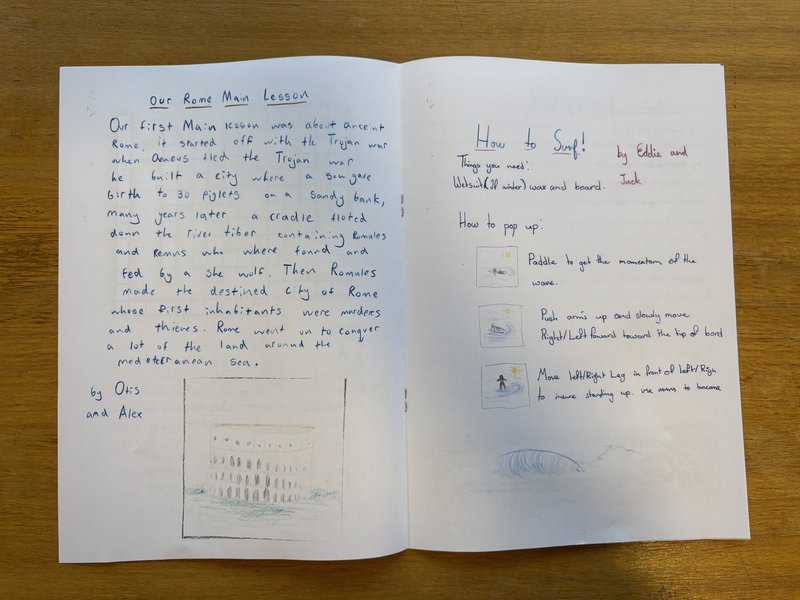 Our Rome Main Lesson
Our first Main lesson was about ancent
Rome, it started off with the Trojan war
when Aeneus fled the Trojan war
he built a city where a sow gave
birth to 30 piglets on a sandy bank,
many years later a cradle floted
down the river tiber containing Romules
and Remus who where found and
fed by a she wolf. Then Romules
made the destined City of Rome
whose first inhabitants were murders
and thieves. Rome went on to conquer
a lot of the land around the
mediterranean sea.
by Otis
and Alex
How to Surf!
by Eddie and
Jack
Things you need:
Wetsuit (If winter) wax and board.
How to pop up:
Paddle to get the momentum of the
wave.
Push arms up and slowly move
Right/Left foward toward the tip of bord
Move left/Right Leg in front of left/Righ
to insure standing up. use arms to